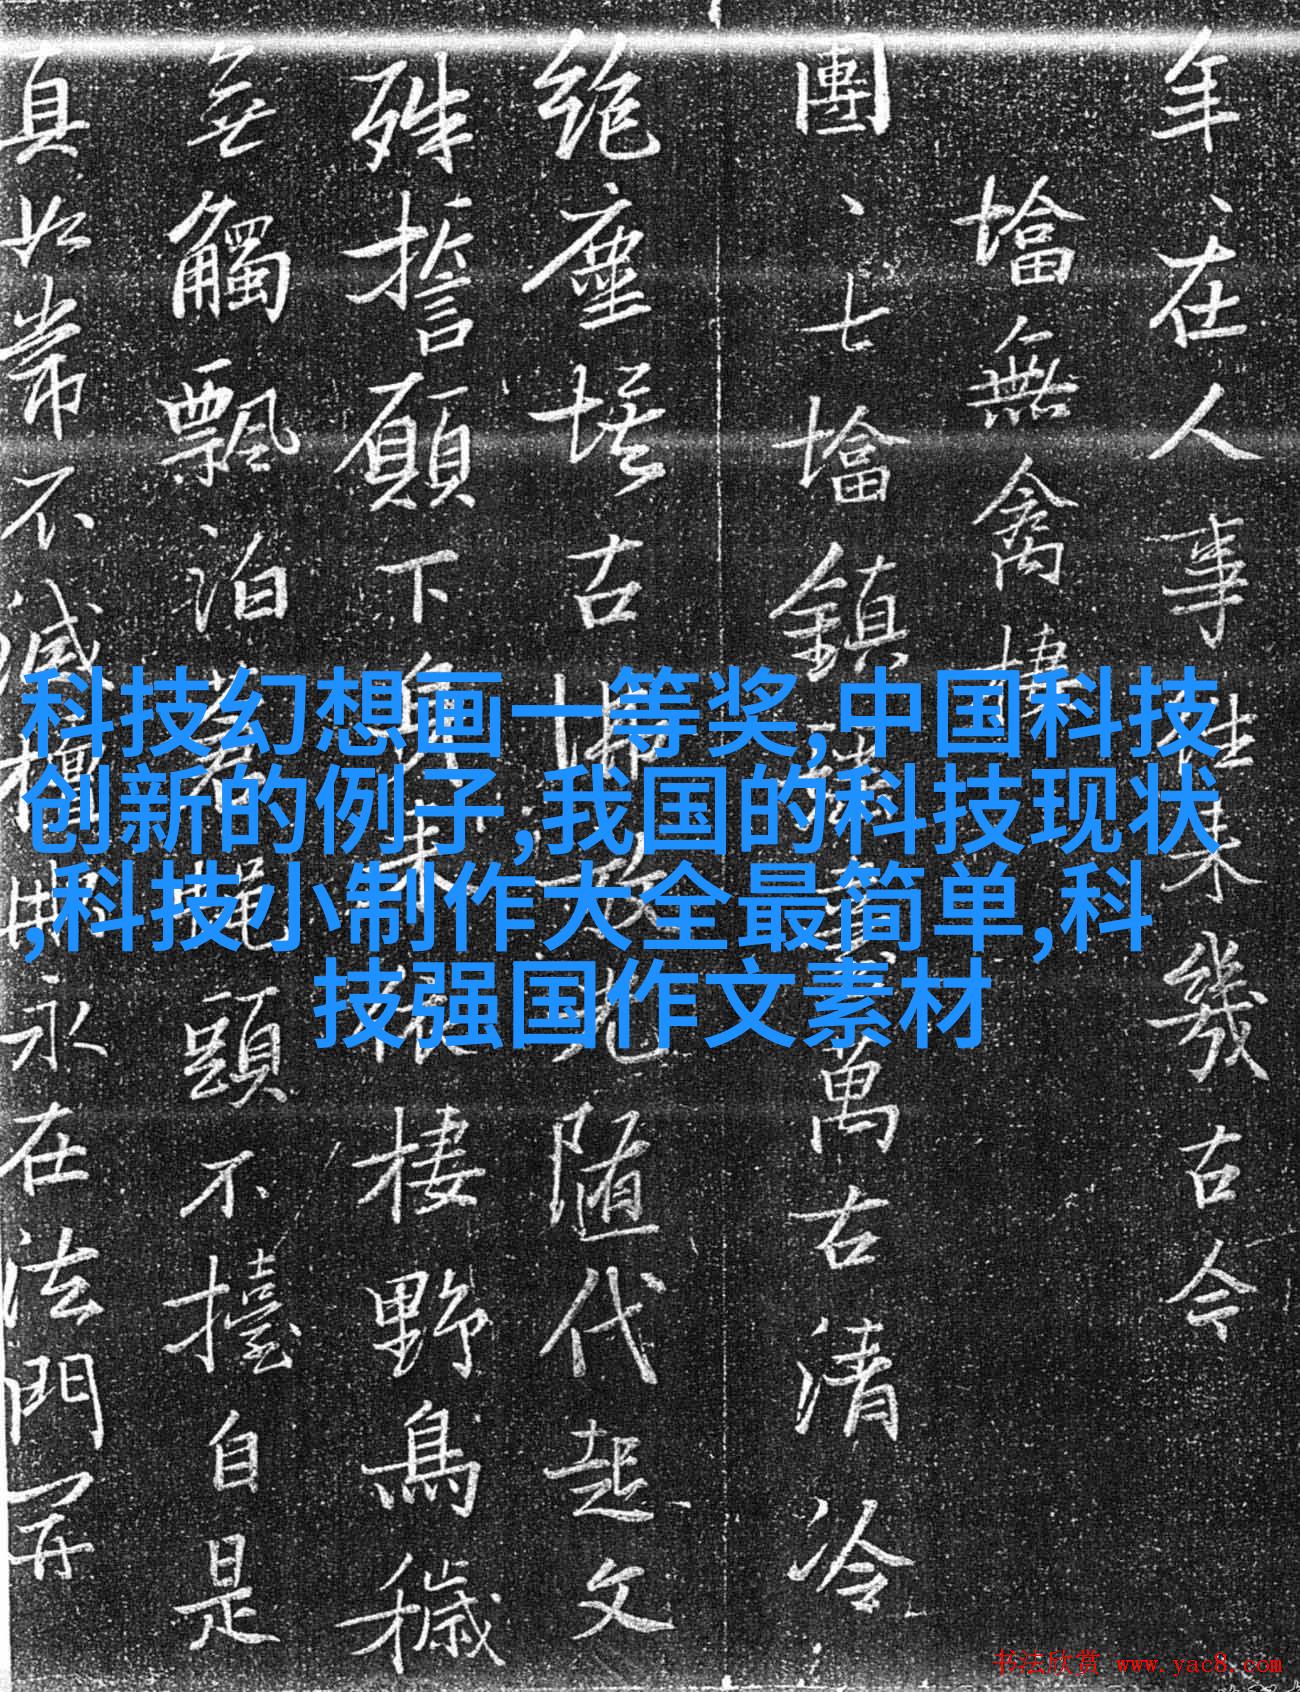 年、在人事往來幾古今
墖無禽棲
團、七墖鎮
萬古清冷
絶塵埃古
隨代起文
殊誓願下
棲野鳥穢
無觸飄泊
頭不擡自是
真如常不滅
永在法門開
科技幻想画一等奖,中国科技
创新的例子,我国的科技现状
,科技小制作大全最简单,科
技强国作文素材
书法欣赏 www.yac8.com